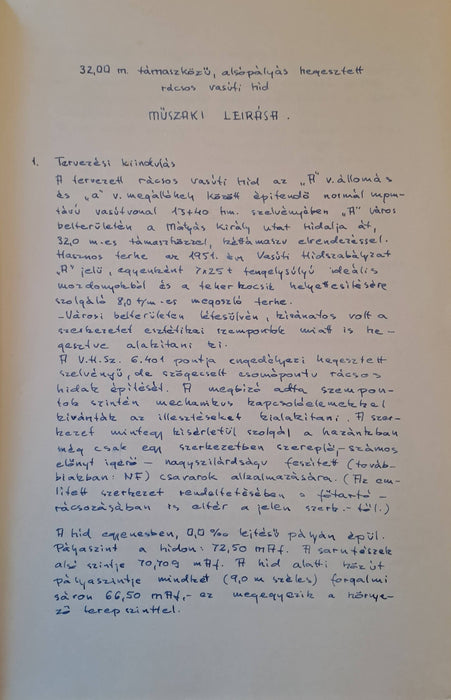 32,00 m. támaszközű, alsópályás hegesztett
rácsos vasúti híd
MŰSZAKI LEIRÁSA.
1. Tervezési kiindulás
A tervezett rácsos vasúti híd az "A" v.állomás
és "a" v. megállóhely között építendő normál nyom-
távú vasútvonal 13+40 hm. szelvényében "A" város
belterületén a Mátyás Király utat hidalja át,
32,0 m-es támaszközzel, kéttámaszú elrendezéssel.
Hasznos terhe az 1951. évi Vasúti Hídszabályzat
"A" jelű, egyenként 7x25 t tengelysúlyú ideális
mozdonyokból és a teherkocsik helyettesítésére
szolgáló 8,0 t/m-es megoszló terhe.
-Városi belterületen létesülvén, kívánatos volt a
szerkezetet esztétikai szempontok miatt is he-
gesztve alakítani ki.
A V.H.Sz. 6.401 pontja engedélyezi hegesztett
szelvényű, de szögecselt csomópontú rácsos
hidak építését. A megbízó adta szempon-
tok szintén mechanikus kapcsolóelemekkel
kívánták az illesztéseket kialakítani. A szer-
kezet mintegy kísérletül szolgál a hazánkban
még csak egy szerkezetben szereplő,-számos
előnyt igérő - nagyszilárdságú feszített (továb-
biakban: NF) csavarok alkalmazására. (Az em-
lített szerkezet rendeltetésében s főtartó-
rácsozásában is eltér a jelen szerk.-től.)
A híd egyenesben, 0,0 ‰ lejtésű pályán épül.
Pályaszint a hídon: 72,50 mAf. A sarutestek
alsó szintje 70,709 mAf. A híd alatti közút
pályaszintje mindkét (9,0 m széles) forgalmi
sávon 66,50 mAf,- ez megegyezik a környe-
ző terepszinttel.